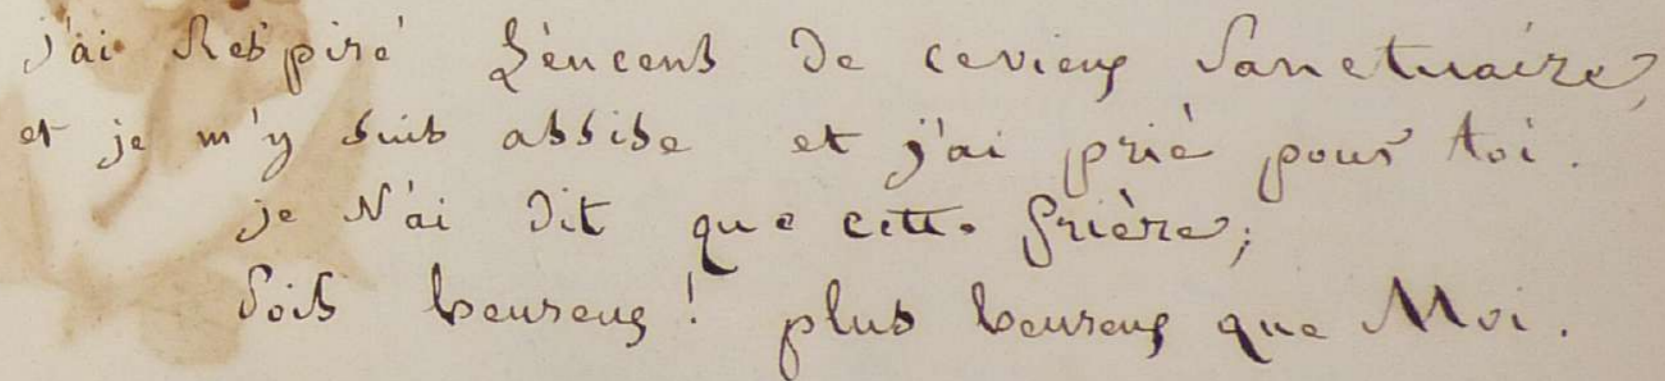 j'ai Respiré L'éncens de cevieux Sanctuaire,
et je m'y suis assise et j'ai prié pour toi.
je N'ai dit que cette Prière;
Sois heureux ! plus heureux que Moi.